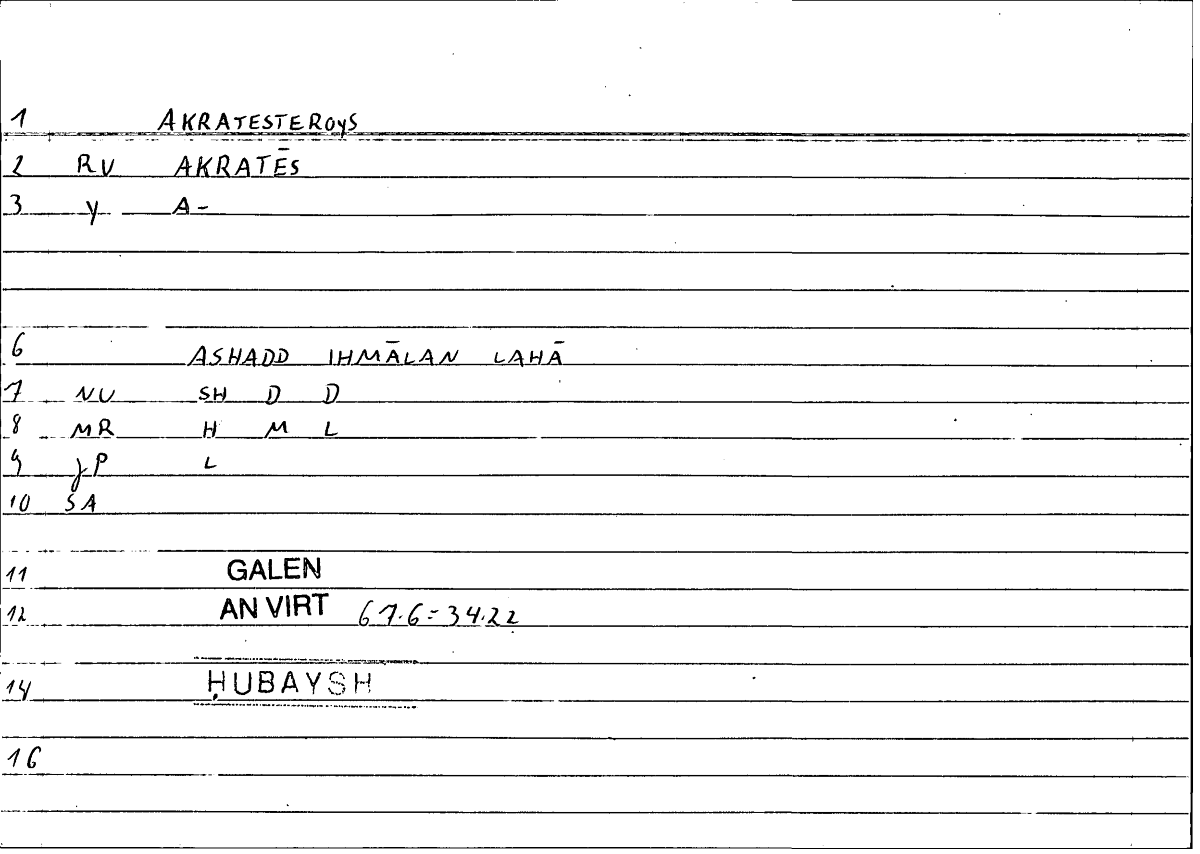 1 AKRATESTEROyS
2 RV AKRATĒS
3 y A-
6 ASHADD IHMĀLAN LAHĀ
7 NU SH D D
8 MR H M L
9 JP L
10 SA
11 GALEN
12 AN VIRT 67.6=34.22
14 ḤUBAYSH
16